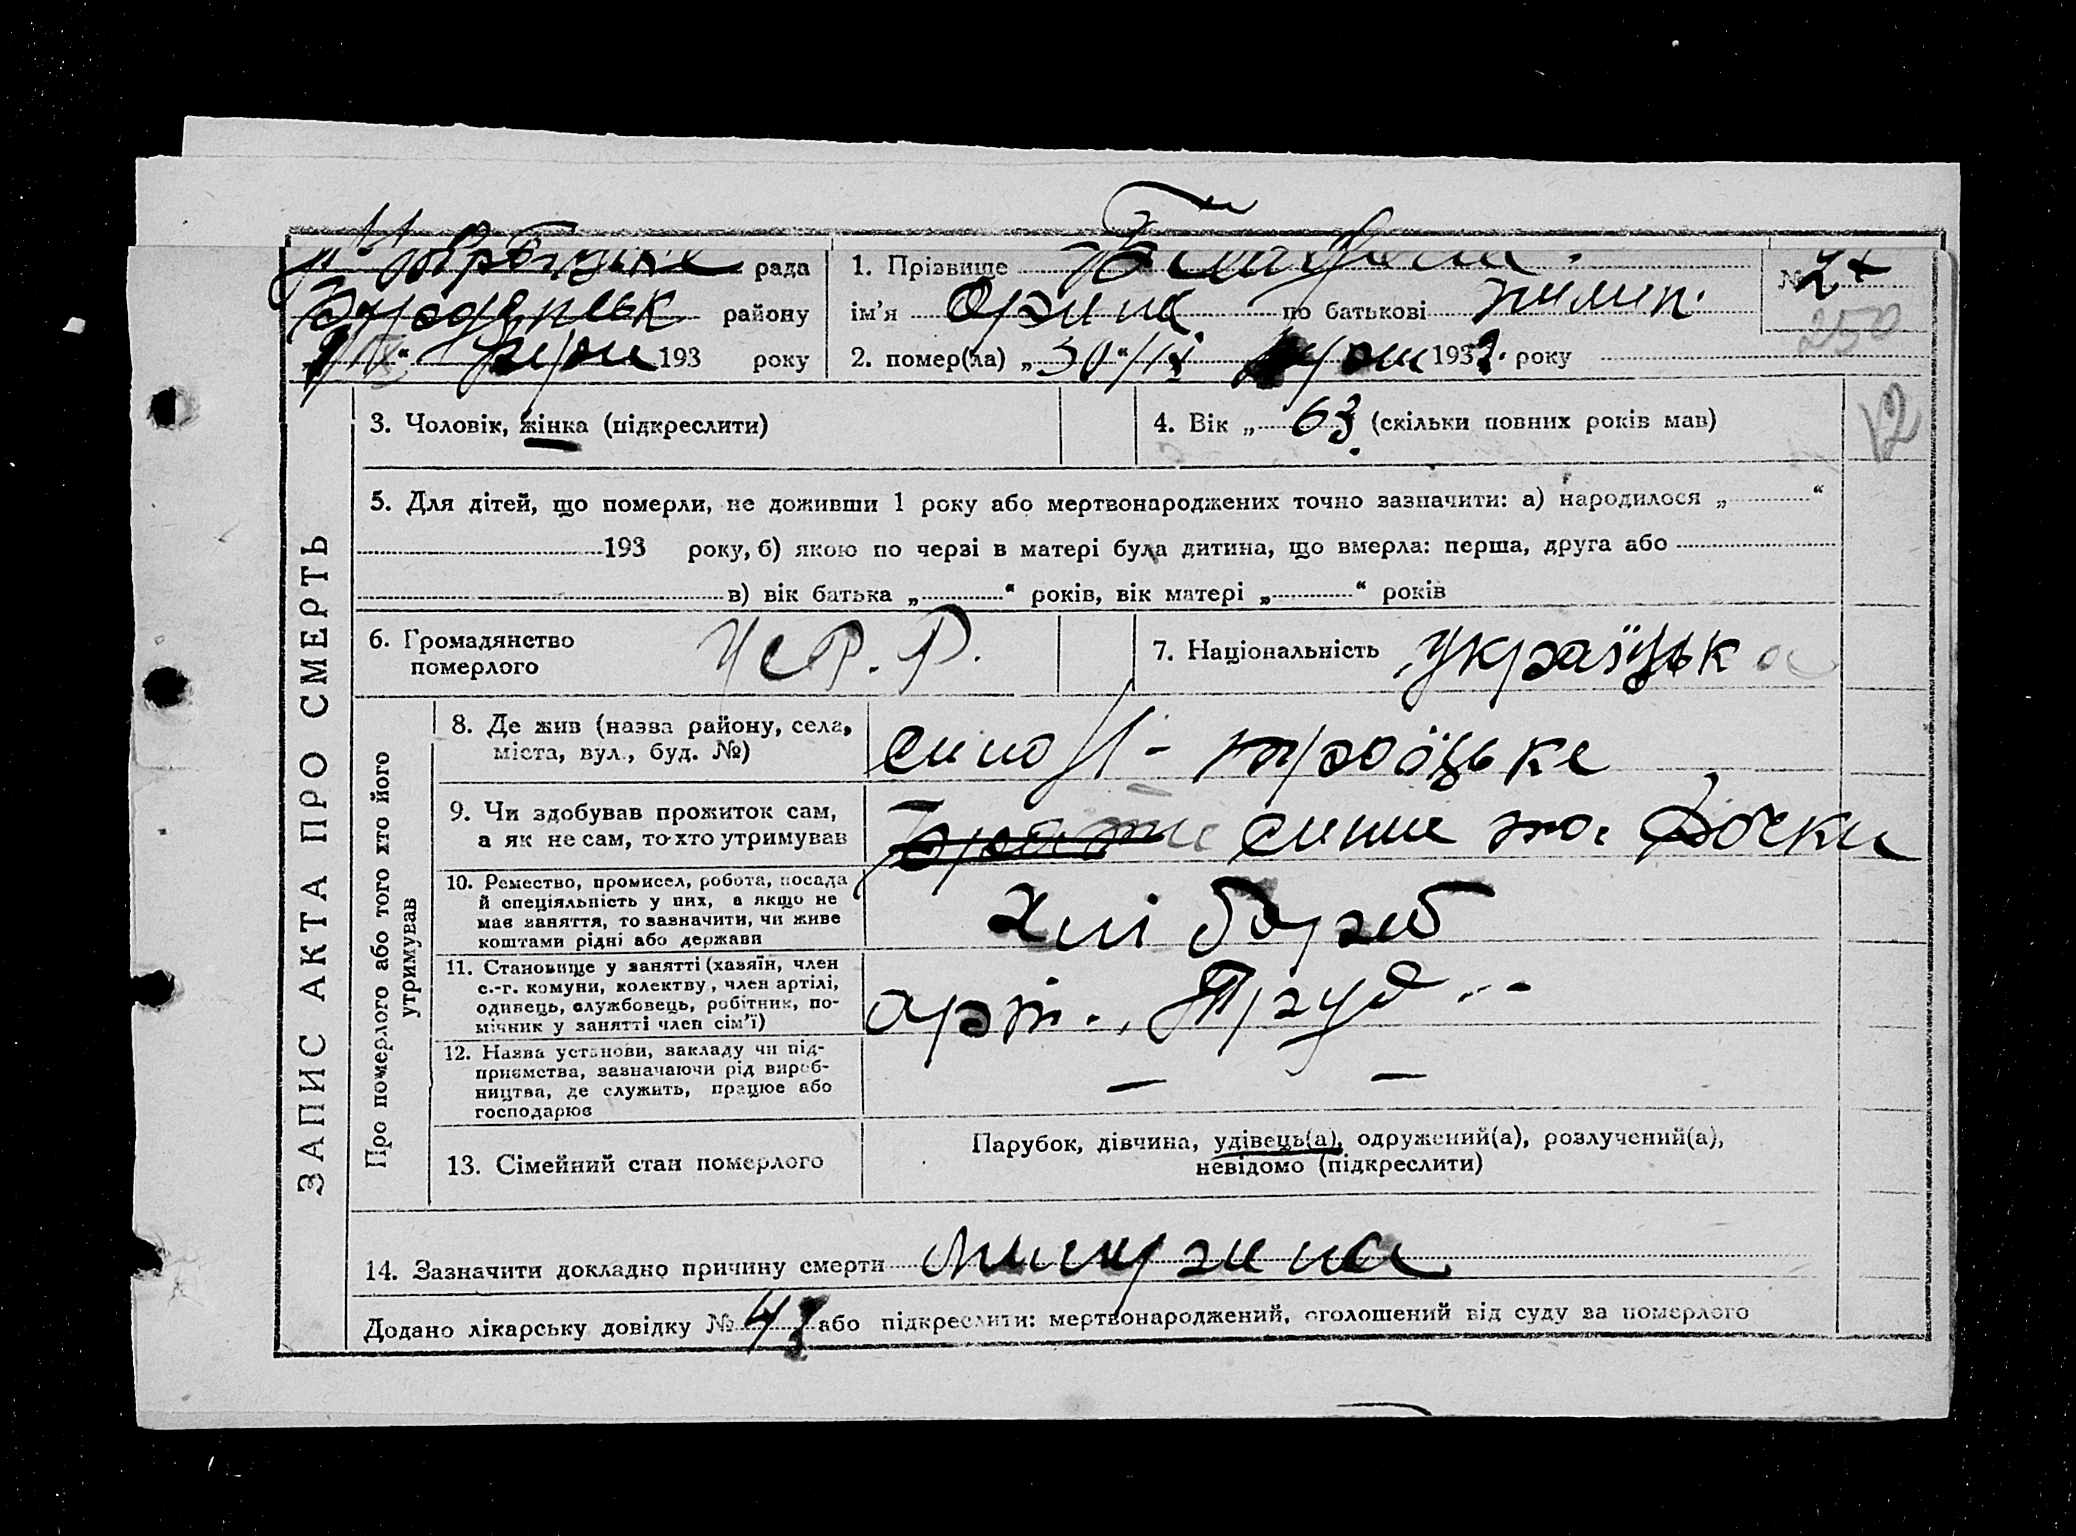 рада
1. Прізвище
№ 24
району
ім'я Орина по батькові Пилип.
250
193 року
2. помер(ла) „30“/IX 193 року
3. Чоловік, жінка (підкреслити)
4. Вік „63 (скільки повних років мав)
12
5. Для дітей, що померли, не доживши 1 року або мертвонароджених точно зазначити: а) народилося „ “
193 року, б) якою по черзі в матері була дитина, що вмерла: перша, друга або
в) вік батька „ “ років, вік матері „ “ років
6. Громадянство
померлого
УСРР.
7. Національність українська
ЗАПИС АКТА ПРО СМЕРТЬ
Про померлого або того хто його
утримував
8. Де жив (назва району, села,
міста, вул., буд. №)
село Н-троїцьке
9. Чи здобував прожиток сам,
а як не сам, то хто утримував
дочки
10. Ремество, промисел, робота, посада
й спеціяльність у них, а якщо не
має заняття, то зазначити, чи живе
коштами рідні або держави
хлібороб
11. Становище у занятті (хазяїн, член
с.-г. комуни, колектву, член артілі,
одинець, службовець, робітник, по-
мічник у занятті член сім'ї)
арт. „Труд"
12. Назва установи, закладу чи під-
приємства, зазначаючи рід вироб-
ництва, де служить, працює або
господарює
— —
13. Сімейний стан померлого
Парубок, дівчина, удівець(а), одружений(а), розлучений(а),
невідомо (підкреслити)
14. Зазначити докладно причину смерти
Додано лікарську довідку № або підкреслити: мертвонароджений, оголошений від суду за померлого